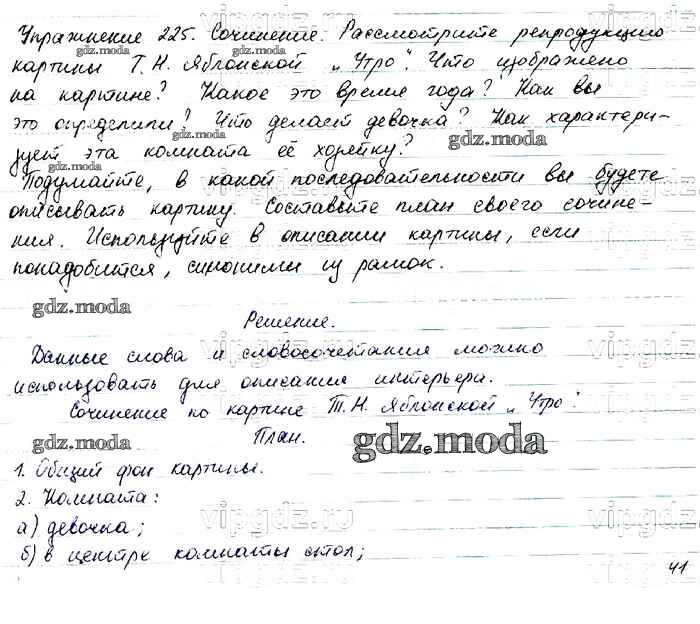 Упражнение 225. Сочинение. Рассмотрите репродукцию
картины Т. Н. Яблонской „Утро". Что изображено
на картине? Какое это время года? Как вы
это определили? Что делает девочка? Как характери-
зует эта комната её хозяйку?
Подумайте, в какой последовательности вы будете
описывать картину. Составьте план своего сочине-
ния. Используйте в описании картины, если
понадобится, синонимы из рамок.
Решение.
Данные слова и словосочетания можно
использовать для описания интерьера.
Сочинение по картине Т. Н. Яблонской „Утро".
План.
1. Общий фон картины.
2. Комната:
а) девочка;
б) в центре комнаты стол;
41
gdz.moda
gdz.moda
gdz.moda
gdz.moda
gdz.moda
gdz.moda
gdz.moda
gdz.moda
vipgdz.ru
vipgdz.ru
vipgdz.ru
vipgdz.ru